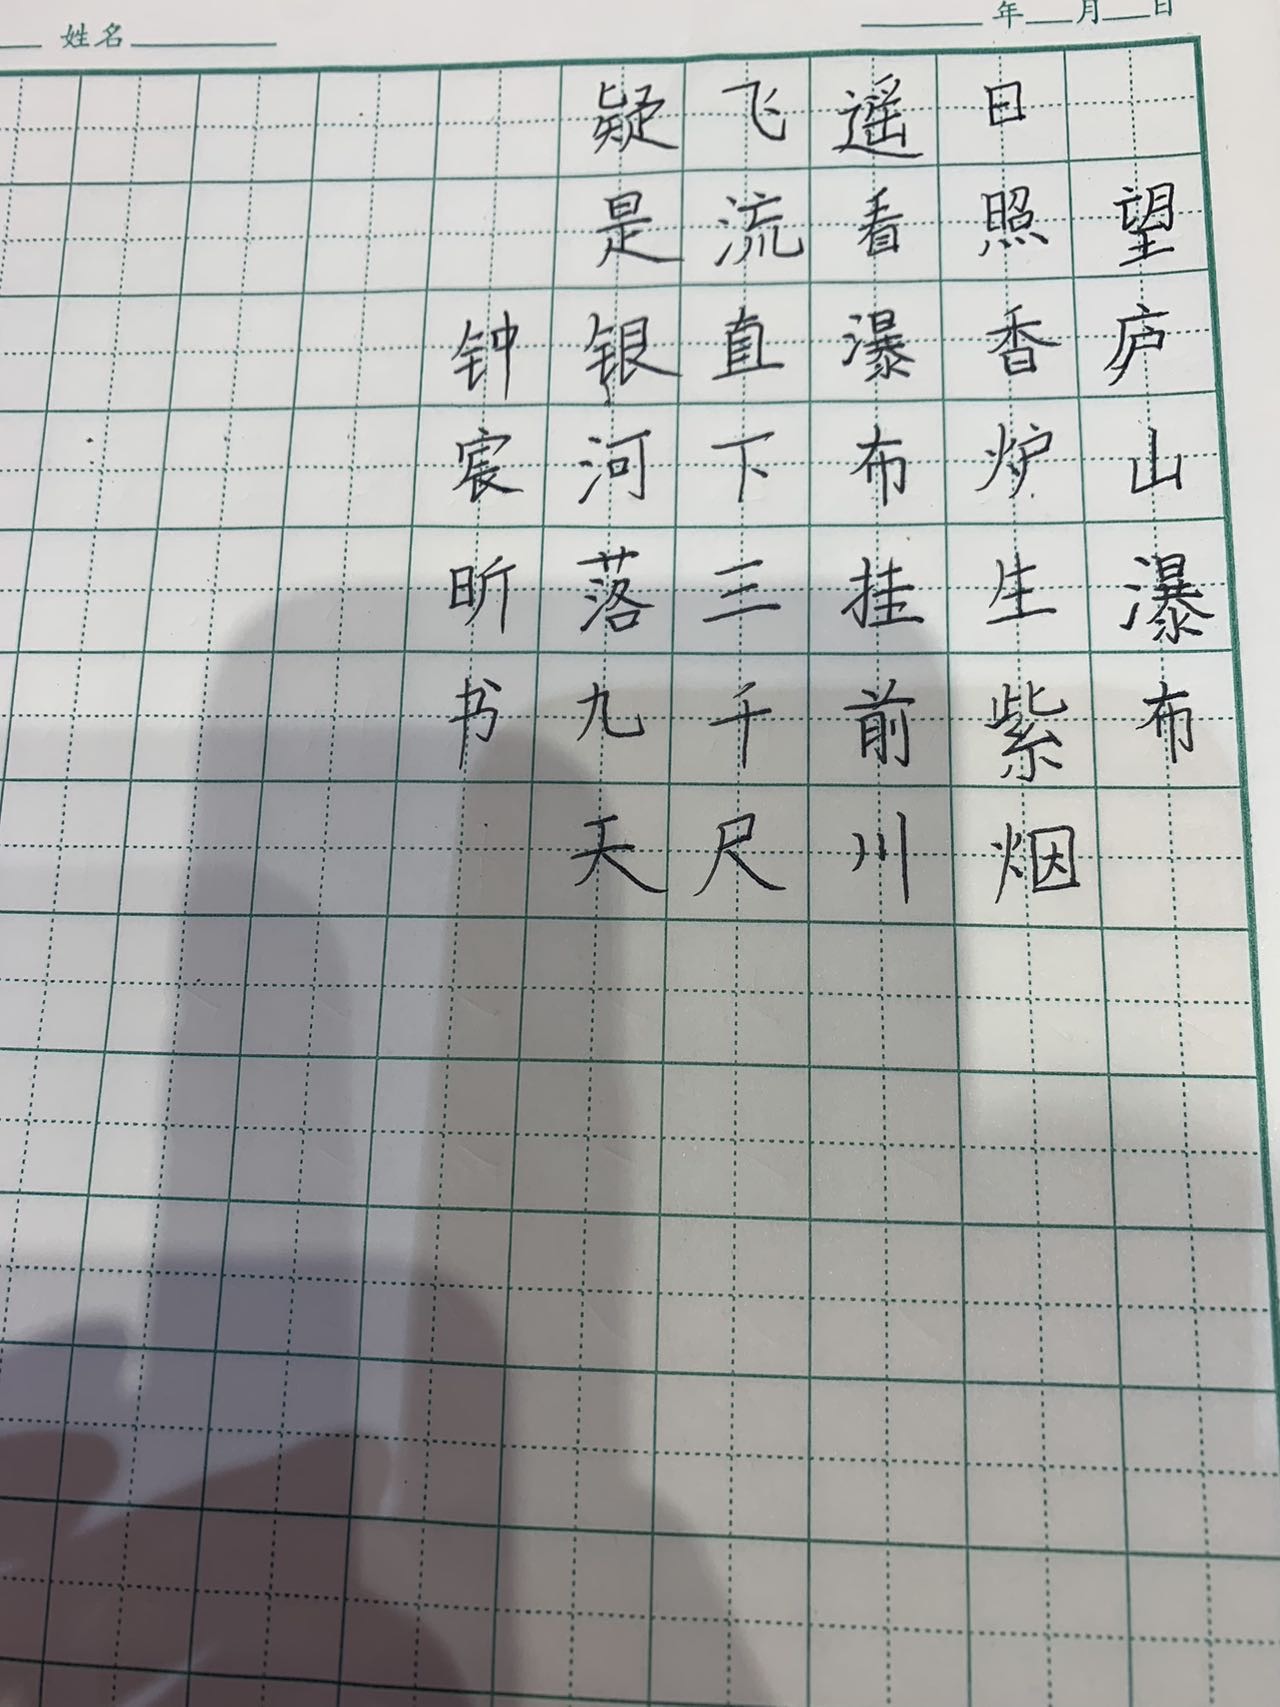 姓名
年 月 日
望庐山瀑布
日照香炉生紫烟
遥看瀑布挂前川
飞流直下三千尺
疑是银河落九天
钟宸昕书